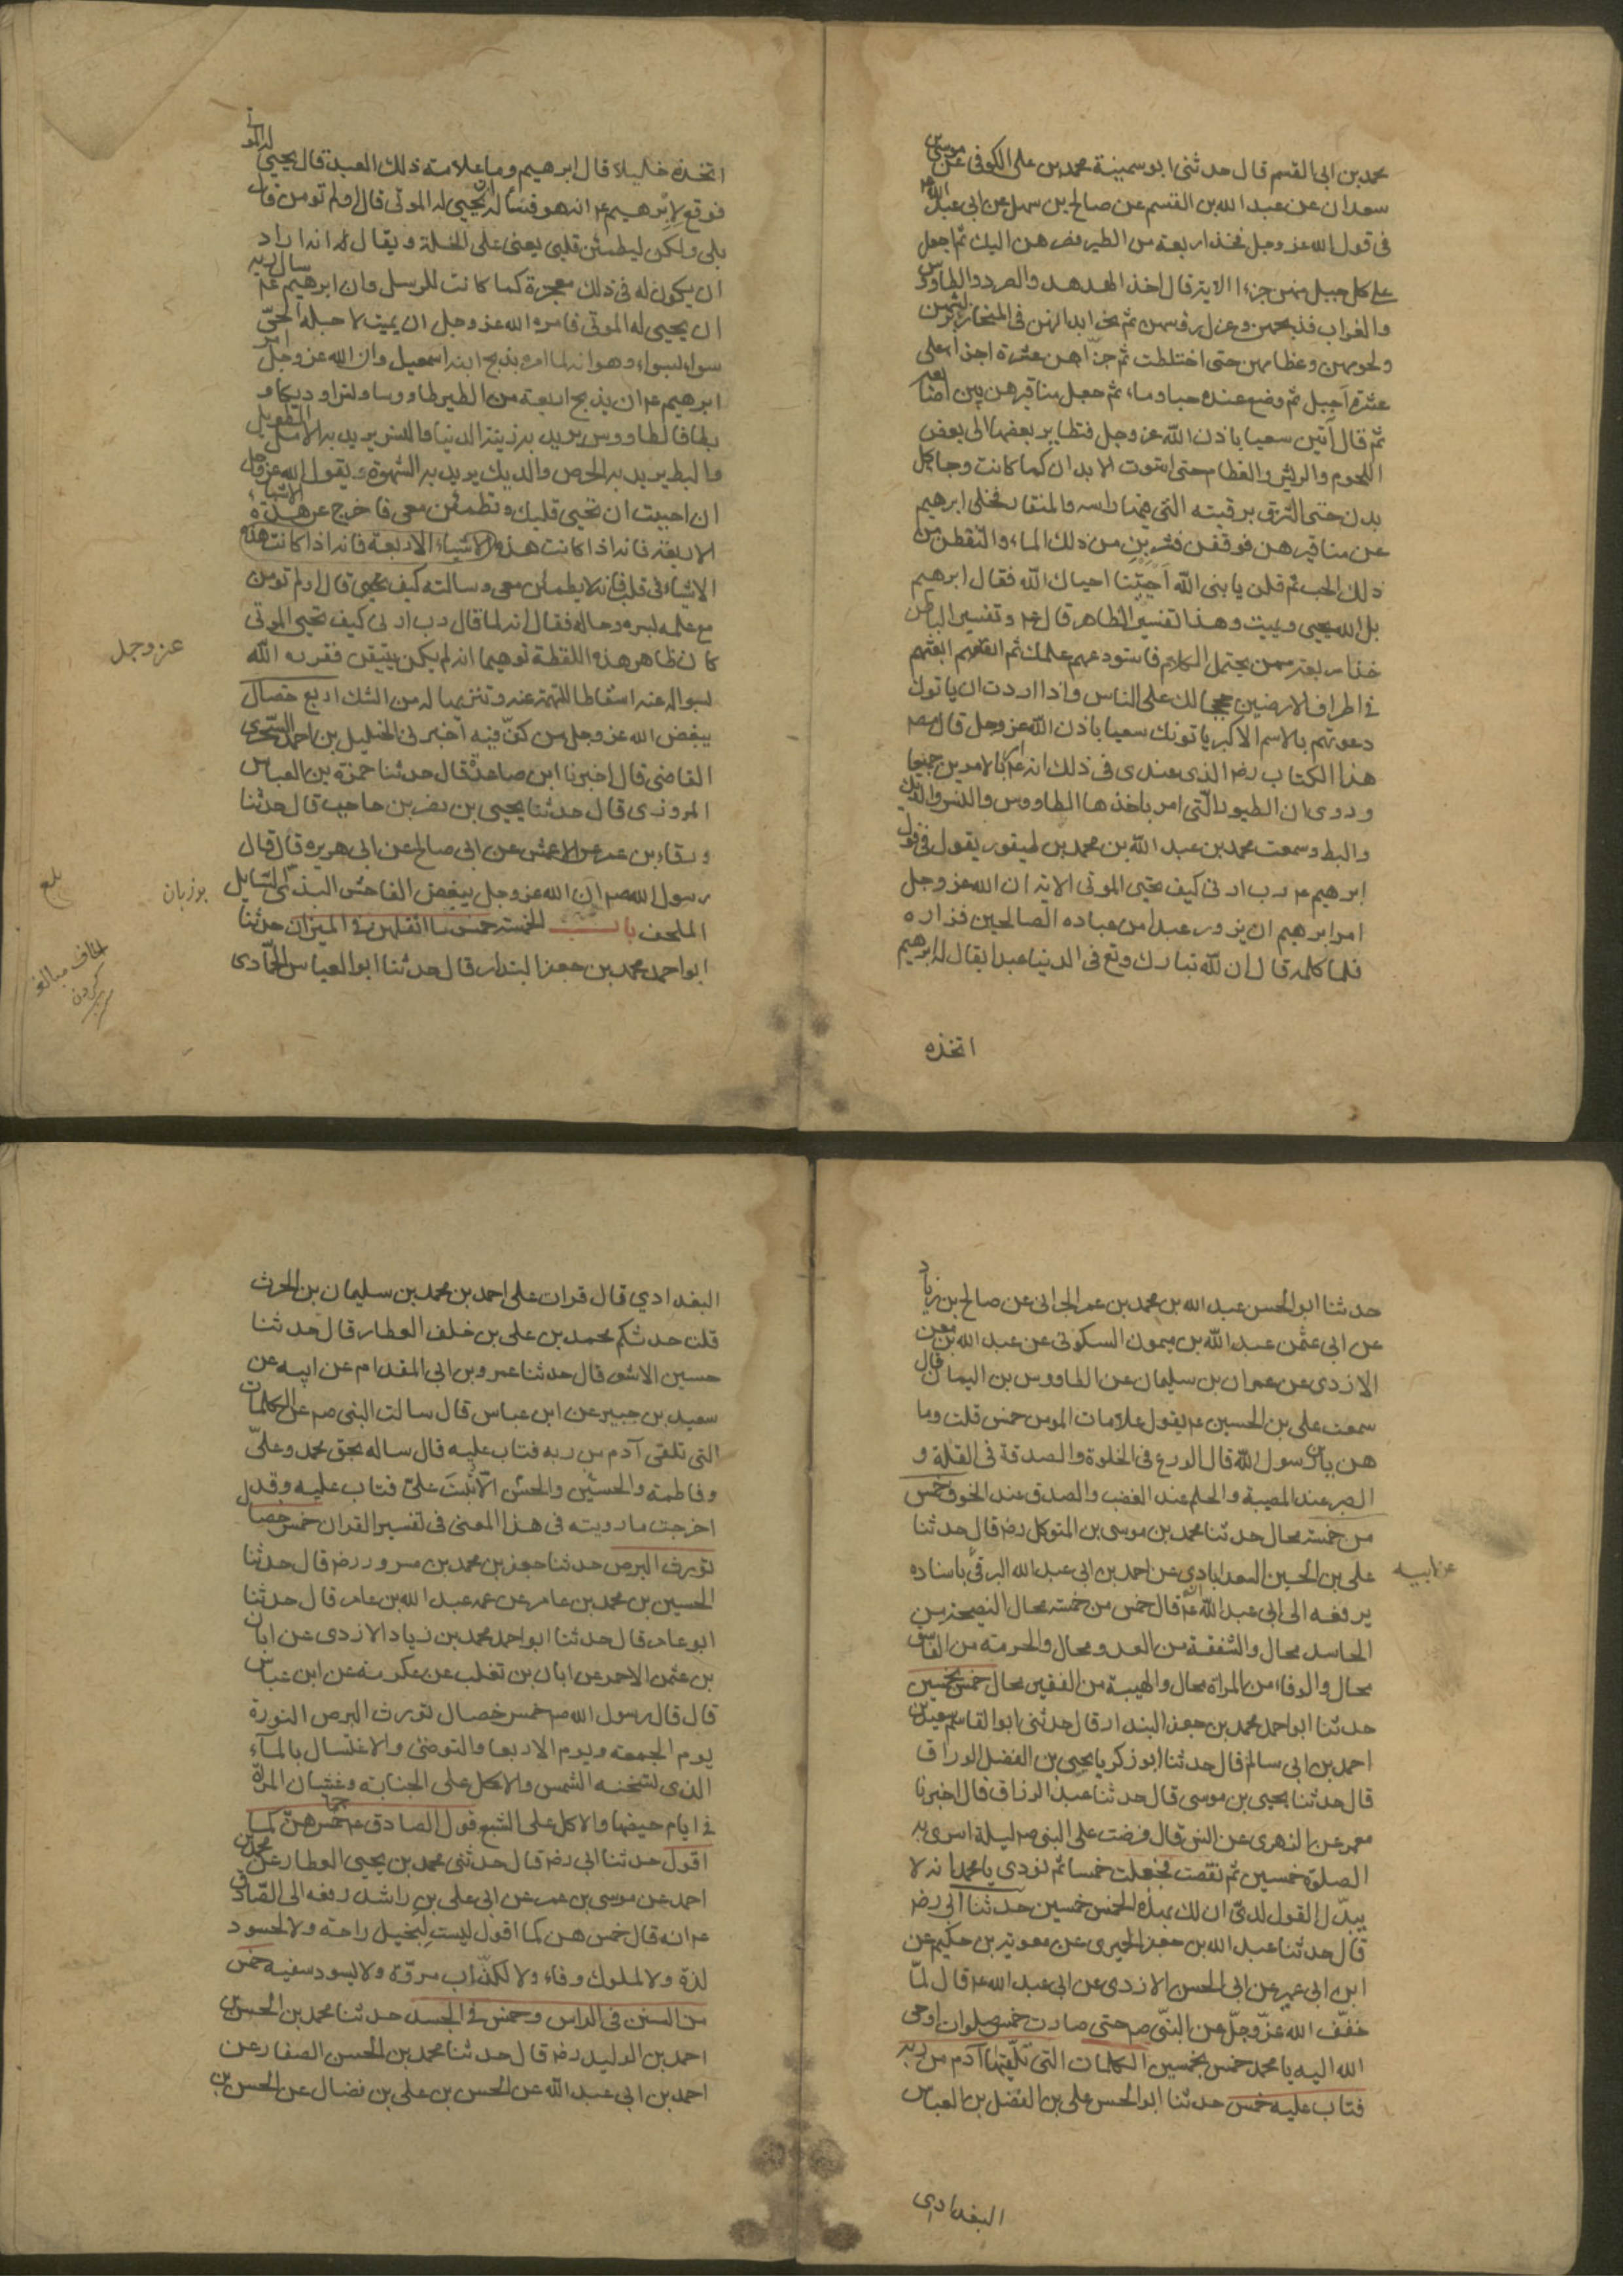 محمد بن ابى القسم قال حدثنى ابو سمينة محمد بن على الكوفى عن موسى بن
سعدان عن عبد الله بن القسم عن صالح بن سهل عن ابى عبد الله ع
فى قول الله عز وجل فخذ اربعة من الطير فصرهن اليك ثم اجعل
على كل جبل منهن جزءا الاية قال اخذ الهدهد والصرد والطاوس
والغراب فذبحهن وعزل رؤسهن ثم نحز ابدانهن فى المنحاز بريشهن
ولحومهن وعظامهن حتى اختلطت ثم جزأهن عشرة اجزاء على
عشرة اجبل ثم وضع عنده حبا وماء ثم جعل مناقيرهن بين اصابعه
ثم قال آتين سعيا باذن الله عز وجل فتطاير بعضها الى بعض
اللحوم والريش والعظام حتى استوت الابدان كما كانت وجاء كل
بدن حتى التزق برقبته التى فيها راسه والمنقار فخلى ابرهيم
عن مناقيرهن فوقفن فشربن من ذلك الماء والتقطن من
ذلك الحب ثم قلن يا نبى الله احييتنا احياك الله فقال ابرهيم
بل الله يحيى ويميت وهذا تفسير الظاهر قال ع وتفسير الباطن
خذ اربعة ممن يحتمل الكلام فاستودعهم علمك ثم ابعثهم
فى اطراف الارضين حججا لك على الناس واذا اردت ان ياتوك
دعوتهم بالاسم الاكبر ياتونك سعيا باذن الله عز وجل قال مصنف
هذا الكتاب رض الذى عندى فى ذلك انه ع امر بالامرين جميعا
وروى ان الطيور التى امر باخذها الطاووس والنسر والديك
والبط وسمعت محمد بن عبد الله بن محمد بن طيفور يقول فى قول
ابرهيم ع رب ارنى كيف تحيى الموتى الاية ان الله عز وجل
امر ابرهيم ان يزور عبدا من عباده الصالحين فزاره
فلما كلمه قال ان لله تبارك وتع فى الدنيا عبدا يقال له ابرهيم
اتخذه
اتخذه خليلا قال ابرهيم وما علامة ذلك العبد قال يحيى له الموتى
فوقع لابرهيم ع انه هو فسأله ان يحيى له الموتى قال اولم تومن قال
بلى ولكن ليطمئن قلبى يعنى على الخلة ويقال انه اراد
ان يكون له فى ذلك معجزة كما كانت للرسل وان ابرهيم ع سال ربه
ان يحيى له الموتى فامره الله عز وجل ان يميت لاجله الحى
سواء بسواء وهو انه لما امره بذبح ابنه اسمعيل وان الله عز وجل امر
ابرهيم ع ان يذبح اربعة من الطير طاووسا ونسرا وديكا و
بطا فالطاووس يريد به زينة الدنيا والنسر يريد به الامل الطويل
والبط يريد به الحرص والديك يريد به الشهوة ويقول الله عز وجل
ان احببت ان تحيى قلبك وتطمئن معى فاخرج عن هذه الاشياء
الاربعة فانه اذا كانت هذه الاشياء الاربعة فانه اذا كانت هذه
الاشياء فى قلب فانه لا يطمئن معى وسالته كيف يحيى قال اولم تومن
مع علمه بسره وحاله فقال انه لما قال رب ارنى كيف تحيى الموتى
كان ظاهر هذه اللفظة توهيما انه لم يكن بيقين فقرره الله
عز وجل
بسواله عنه اسقاطا للتهمة عنه وتنزيها له من الشك اربع خصال
يبغض الله عز وجل من كن فيه اخبرنى الخليل بن احمد السجزى
القاضى قال اخبرنا ابن صاعد قال حدثنا حمزة بن العباس
المروزى قال حدثنا يحيى بن نصر بن حاجب قال حدثنا
ورقاء بن عمر عن الاعمش عن ابى صالح عن ابى هريرة قال قال
رسول الله ص ان الله عز وجل يبغض الفاحش البذى السايل
بوزبان
بلغ
الملحف باب الخمسة خمس ما اثقلهن فى الميزان حدثنا
الحاف مبالغه كردن
ابو احمد محمد بن جعفر البندار قال حدثنا ابو العباس الحمادى
حدثنا ابو الحسن عبد الله بن محمد بن عمر الحرانى عن صالح بن زياد
عن ابى عثمن عبد الله بن ميمون السكونى عن عبد الله بن معن
الازدى عن عمران بن سليمان عن الطاووس بن اليمان قال
سمعت على بن الحسين ع يقول علامات المومن خمس قلت وما
هن يابن رسول الله قال الورع فى الخلوة والصدقة فى القلة و
الصبر عند المصيبة والحلم عند الغضب والصدق عند الخوف خمس
من خمسة محال حدثنا محمد بن موسى بن المتوكل رض قال حدثنا
على بن الحسين السعدابادى عن احمد بن ابى عبد الله البرقى باسناده
عن ابيه
يرفعه الى ابى عبد الله ع انه قال خمس من خمسة محال النصيحة من
الحاسد محال والشفقة من العدو محال والحرمة من الفاسق
محال والوفاء من المراة محال والهيبة من الفقير محال خمس بخمسين
حدثنا ابو احمد محمد بن جعفر البندار قال حدثنى ابو القاسم سعيد بن
احمد بن ابى سالم قال حدثنا ابو زكريا يحيى بن الفضل الوراق
قال حدثنا يحيى بن موسى قال حدثنا عبد الرزاق قال اخبرنا
معمر عن الزهرى عن انس قال فرضت على النبى ص ليلة اسرى به
الصلوة خمسين ثم نقصت فجعلت خمسا ثم نودى يا محمد انه لا
يبدل القول لدى ان لك بهذه الخمس خمسين حدثنا ابى رض
قال حدثنا عبد الله بن جعفر الحميرى عن معوية بن حكيم عن
ابن ابى عمير عن ابى الحسن الازدى عن ابى عبد الله ع قال لما
خفف الله عز وجل عن النبى ص حتى صارت خمس صلوات اوحى
الله اليه يا محمد خمس بخمسين الكلمات التى تلقيها آدم من ربه
فتاب عليه خمس حدثنا ابو الحسن على بن الفضل بن العباس
البغدادى
البغدادي قال قرات على احمد بن محمد بن سليمان بن الحرث
قلت حدثكم محمد بن على بن خلف العطار قال حدثنا
حسين الاشقر قال حدثنا عمرو بن ابى المقدام عن ابيه عن
سعيد بن جبير عن ابن عباس قال سالت النبى ص عن الكلمات
التى تلقى آدم من ربه فتاب عليه قال ساله بحق محمد وعلى
وفاطمة والحسين والحسن الا تبت على فتاب عليه وقد
اخرجت ما رويته فى هذا المعنى فى تفسير القران خمس خصال
تورث البرص حدثنا جعفر بن محمد بن مسرور رض قال حدثنا
الحسين بن محمد بن عامر عن عمه عبد الله بن عامر قال حدثنا
ابو عامر قال حدثنا ابو احمد محمد بن زياد الازدى عن ابان
بن عثمن الاحمر عن ابان بن تغلب عن عكرمة عن ابن عباس
قال قال رسول الله ص خمس خصال تورث البرص النورة
يوم الجمعة ويوم الاربعا والتوضى والاغتسال بالماء
الذى تسخنه الشمس والاكل على الجنابة وغشيان المرأة
فى ايام حيضها والاكل على الشبع قول الصادق ع خمس هن كما
اقول حدثنا ابى رض قال حدثنى محمد بن يحيى العطار عن محمد بن
احمد عن موسى بن عمر عن ابى على بن راشد رفعه الى الصادق
ع انه قال خمس هن كما اقول ليست لبخيل راحة ولا لحسود
لذة ولا لملوك وفاء ولا لكذاب مروة ولا يسود سفيه خمس
من السنن فى الراس وخمس فى الجسد حدثنا محمد بن الحسن بن
احمد بن الوليد رض قال حدثنا محمد بن الحسن الصفار عن
احمد بن ابى عبد الله عن الحسن بن على بن فضال عن الحسن بن